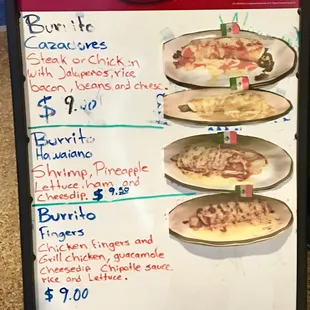 Burrito
Cazadores
Steak or Chicken
with Jalapeños, rice
bacon, beans, and chese.
$ 9.00
Burrito
Hawaiano
Shrimp, Pineapple
Lettuce, ham, and
cheesdip. $ 9.50
Burrito
Fingers
Chicken Fingers and
Grill chicken, guacamole
Cheesedip Chipotle sauce
rice and Lettuce.
$ 9.00